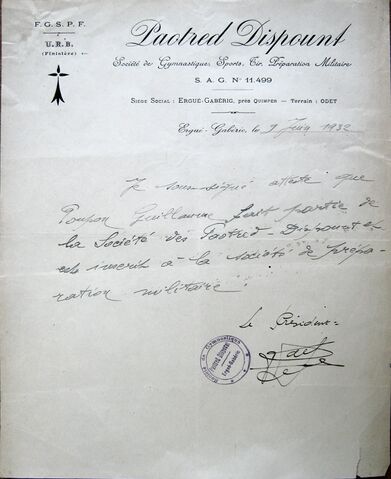 F. G. S. P. F.
U. R. B.
(Finistère)
Paotred Dispount
Société de Gymnastique, Sports, Tir, Préparation Militaire
S. A. G. N° 11.499
Siège Social : Ergué-Gabéric, près Quimper — Terrain : ODET
Ergué-Gabéric, le 9 Juin 1932
Je sous-signé atteste que
Poupon Guillaume fait partie de
la Société des Paotred-Dispount et
est inscrit à la société de prépa-
ration militaire.
Le Président
Société de Gymnastique
PAOTRED DISPOUNT
Ergué-Gabéric